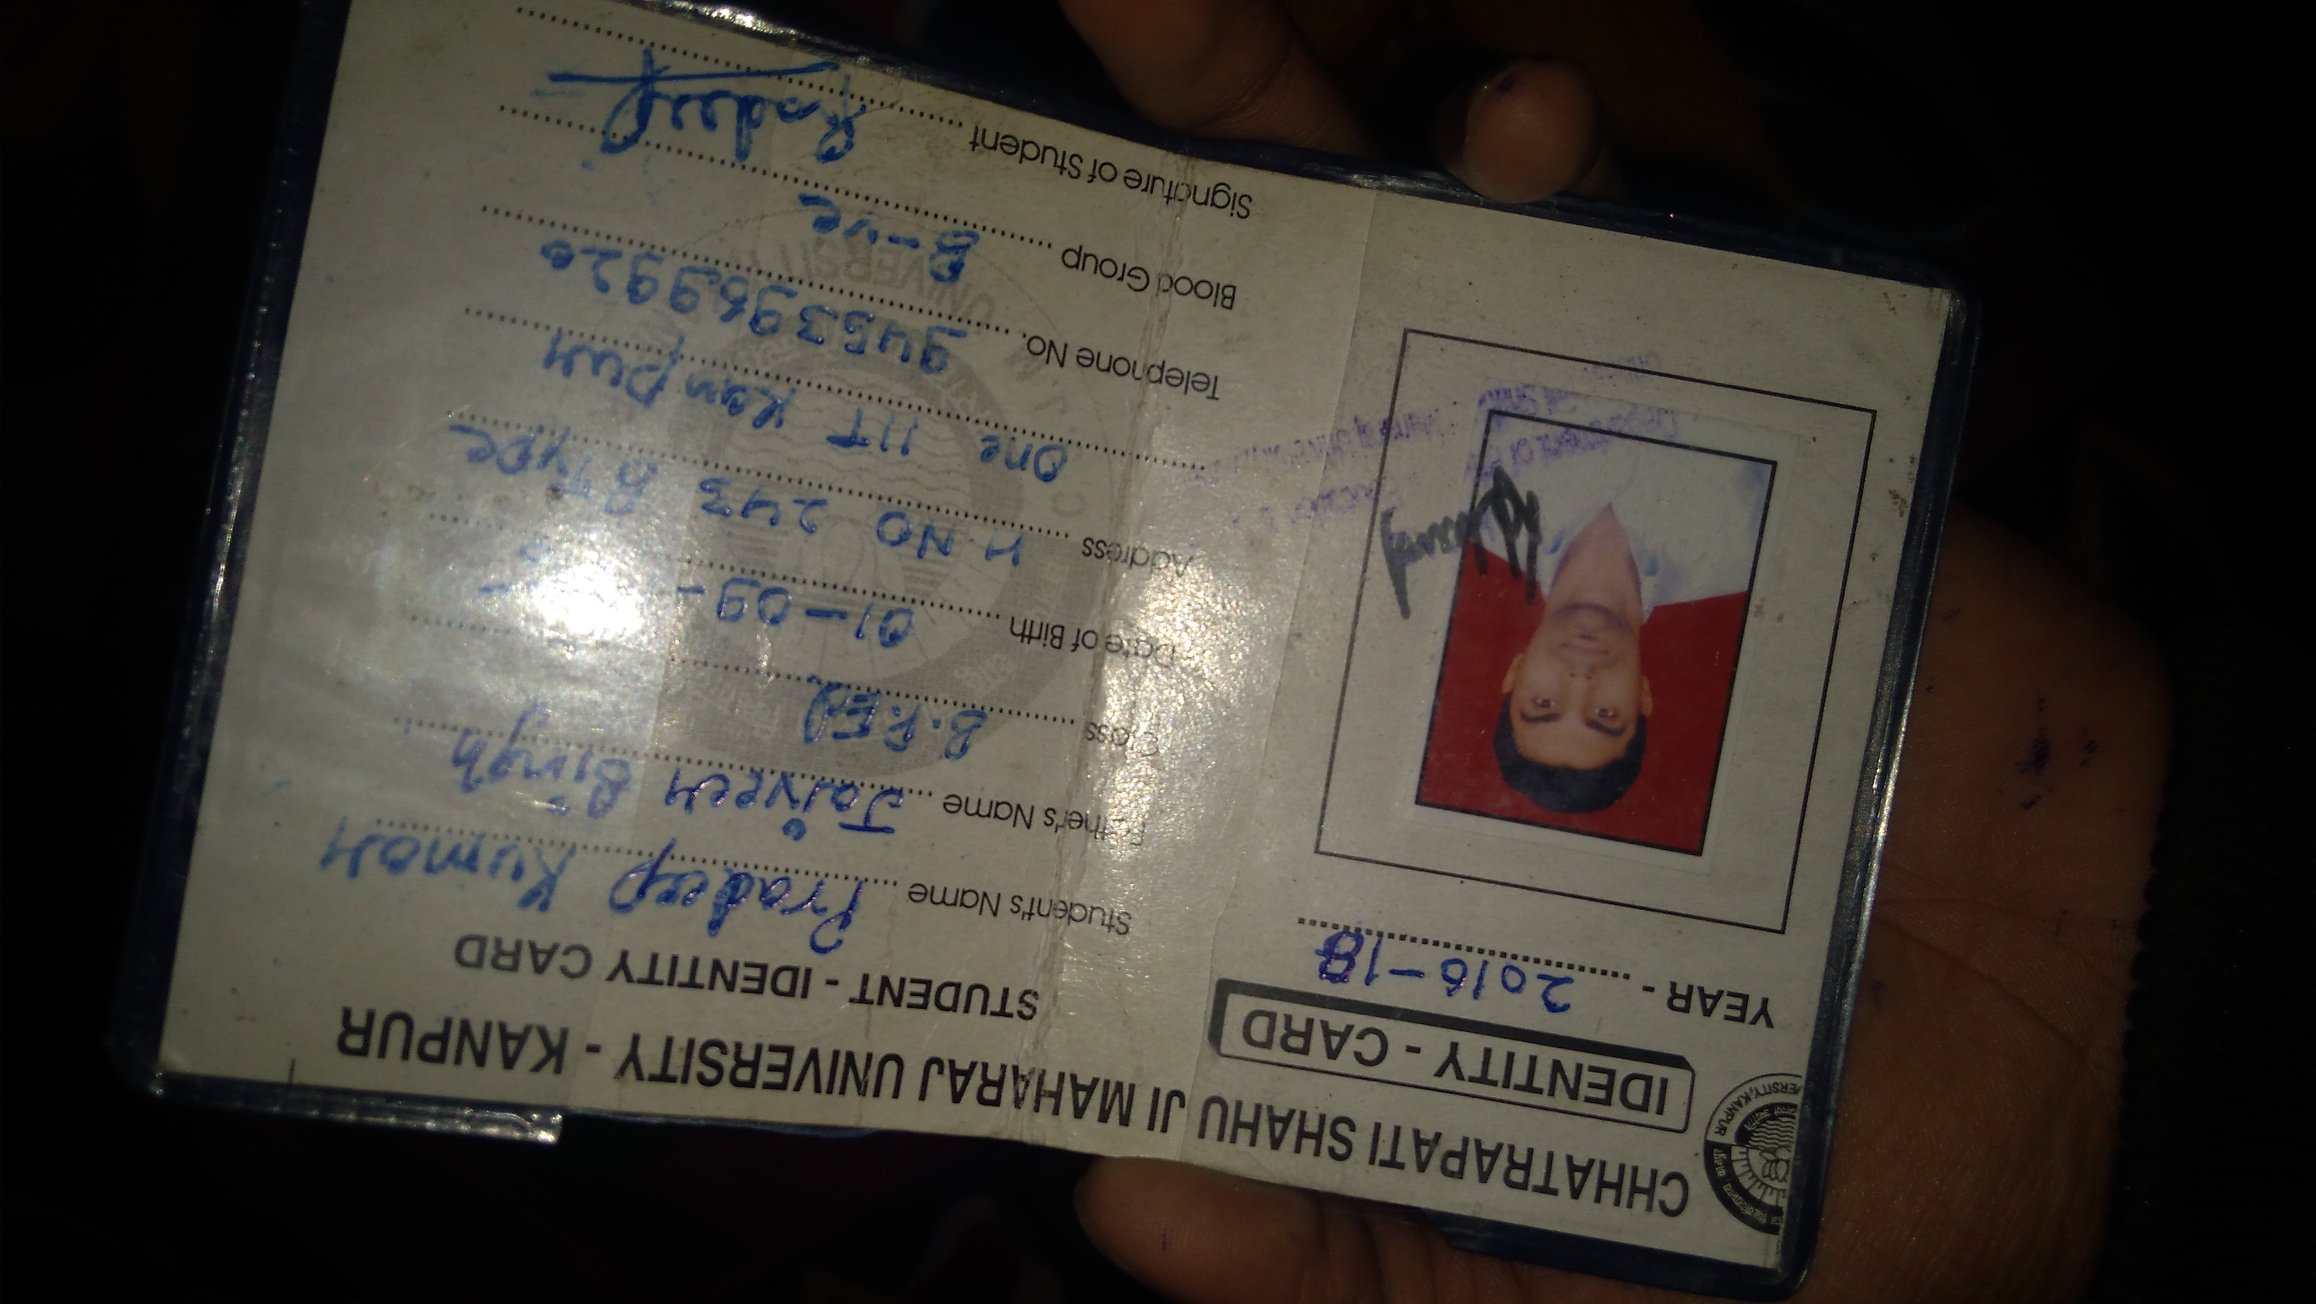 CHHATRAPATI SHAHU JI MAHARAJ UNIVERSITY - KANPUR
IDENTITY - CARD
YEAR - 2016-18
STUDENT - IDENTITY CARD
Student's Name Pradeep Kumar
Father's Name Jaiveer Singh
Class B.P.Ed
Date of Birth 01-09-
Address H NO 243 B Type
One IIT Kanpur
Telephone No. 9453969920
Blood Group B-ve
Signature of Student Pradeep